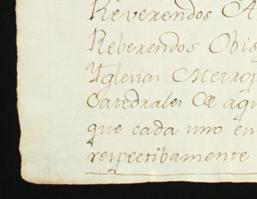 Reverendos A
Reberendos Obis
Yglesias Metrop
Catedrales de aqu
que cada uno en
respectibamente